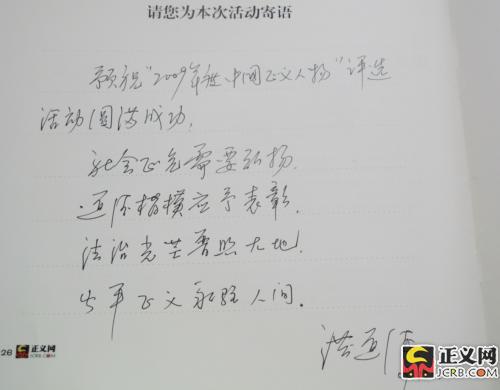 请您为本次活动寄语
预祝“2009年度中国正义人物”评选
活动圆满成功.
社会正气需要弘扬.
道德楷模应予表彰.
法治光芒普照大地!
公平正义永驻人间.
26
正义网
JCRB.COM
正义网
JCRB.COM